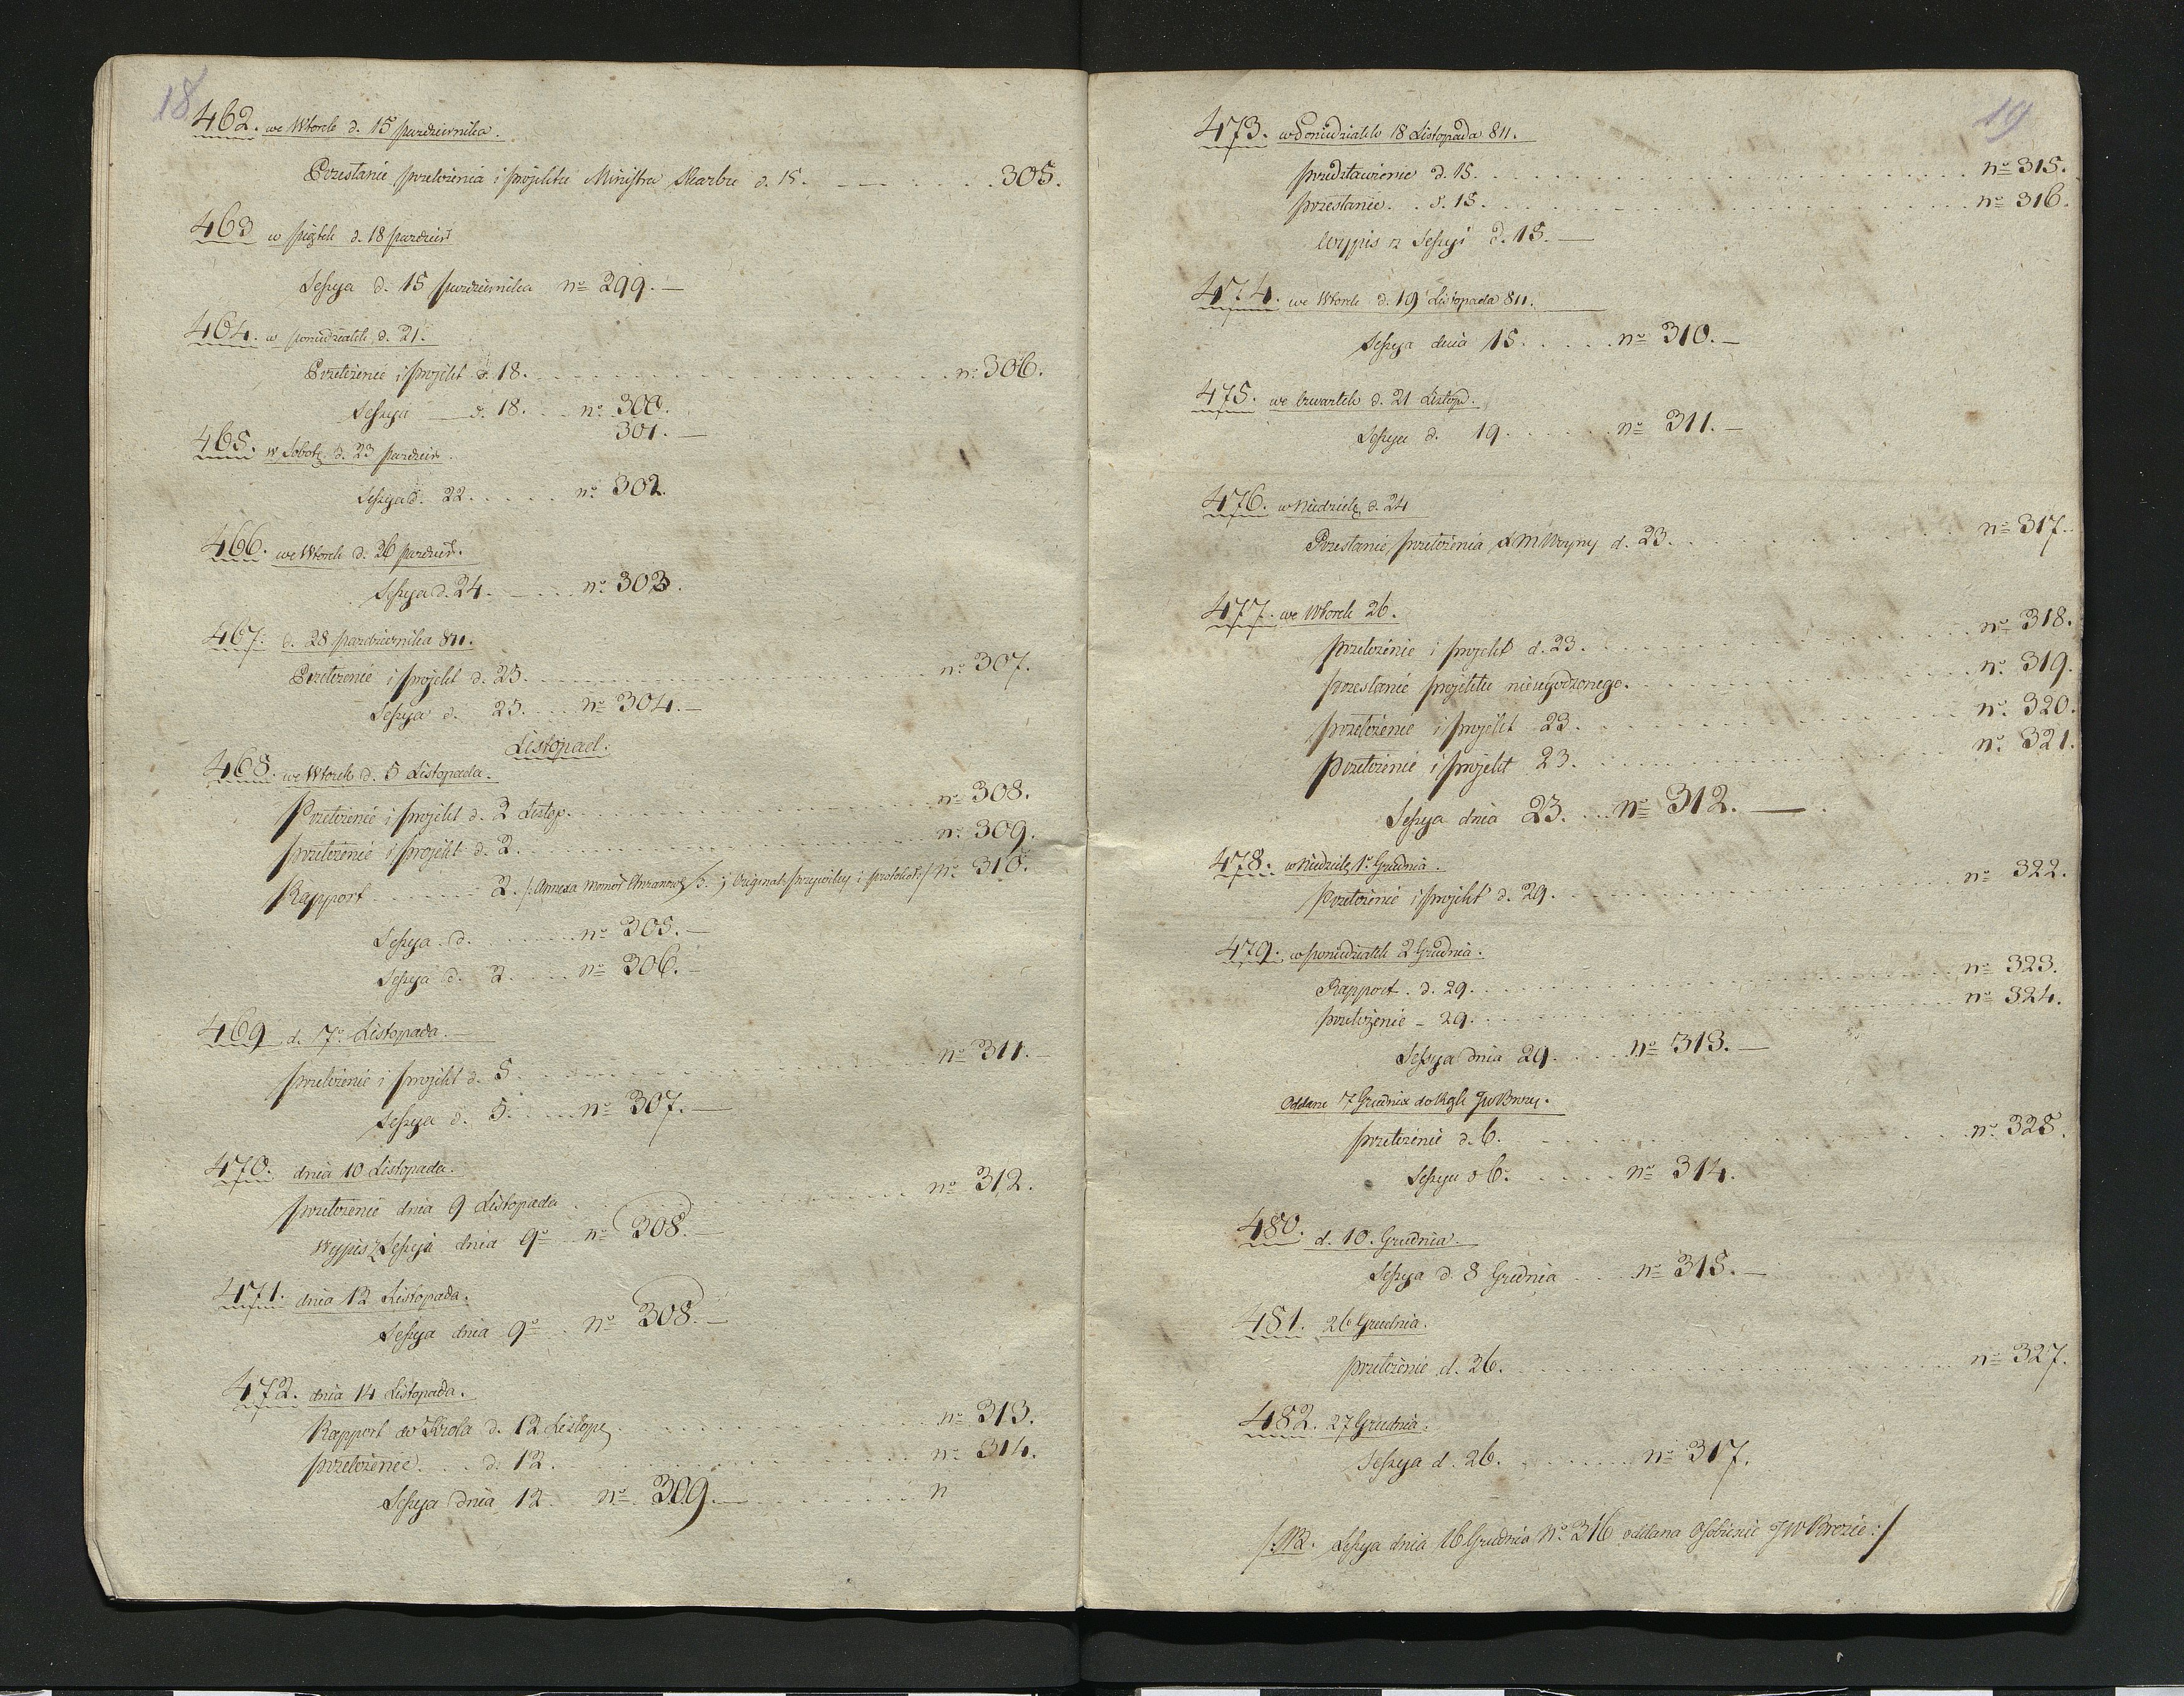 18
462. we Wtorek d. 15 pazdziernika.
Przesłanie przełożenia i projektu Ministra Skarbu d. 15. . . . . 305.
463 w piątek d. 18 pazdzier
Sessya d. 15 pazdziernika no 299. —
464. w poniedziałek d. 21.
Przełożenie i projekt d. 18. . . . . no 306.
Sessya — d. 18. . . no 300.
301. —
465. w Sobotę d. 23 pazdzier.
Sessya d. 22. . . . . no 302.
466. we Wtorek d. 26 pazdzier.
Sessya d. 24. — . . . no 303.
467. d. 28 pazdziernika 811.
Przełożenie i projekt d. 25. . . . . no 307.
Sessya d. 25. . . . no 304. —
Listopad.
468. we Wtorek d. 5 Listopada.
Przełożenie i projekt d. 2 Listop. . . . . no 308.
przełożenie i projekt d. 2. . . . . no 309.
Rapport . . . . . . 2. /: Annexa i Original przywiley i protokoł :/ no 310.
Sessya d. . . . . . . no 305. —
Sessya d. 2. . . . no 306. —
469 d. 7o Listopada. —
przełożenie i projekt d. 5. . . . . no 311. —
Sessya d. 5. . . . no 307. —
470. dnia 10 Listopada.
przełożenie dnia 9 Listopada . . . . . no 312.
Wypis z Sessyi dnia 9o . no 308. —
471. dnia 12 Listopada.
Sessya dnia 9o . no 308. —
472. dnia 14 Listopada.
Rapport do Krola d. 12 Listop. . . . . no 313.
przełożenie . . . d. 12. . . . . no 314.
Sessya dnia 12. no 309. — . . . . n
19
473. w Poniedziałek 18 Listopada 811.
przedstawienie d. 15. . . . . no 315.
przesłanie . . d. 15. . . . . no 316.
Wypis z Sessyi d. 15. —
474. we Wtorek d. 19 Listopada 811.
Sessya dnia 15. . . . . no 310. —
475. we Czwartek d. 21 Listop.
Sessya d. 19. . . . . . no 311. —
476. w Niedzielę d. 24
Przesłanie przełożenia Woyny d. 23. . . . . no 317.
477. we Wtorek 26.
przełożenie i projekt d. 23. . . . . no 318.
przesłanie projektu nieugodzonego. . . . . no 319.
przełożenie i projekt 23. . . . . no 320.
przełożenie i projekt 23. . . . . no 321.
Sessya dnia 23. . . no 312. —
478. w Niedzielę 1o Grudnia.
Przełożenie i projekt d. 29. . . . . no 322.
479. w poniedziałek 2 Grudnia.
Rapport. d. 29. . . . . no 323.
przełożenie - 29. . . . . no 324.
Sessya dnia 29. . . . no 313. —
Oddane 7 Grudnia do Rąk JW Brezy.
przełożenie d. 6. . . . . no 325.
Sessya d 6. . . . . no 314.
480. d. 10. Grudnia.
Sessya d. 8 Grudnia . . . no 315. —
481. 26 Grudnia.
przełożenie d. 26. . . . . no 327.
482. 27 Grudnia.
Sessya d. 26. . . . . . no 317.
/: NB. Sessya dnia 16 Grudnia No 316 oddana Osobiscie JW Brezie :/